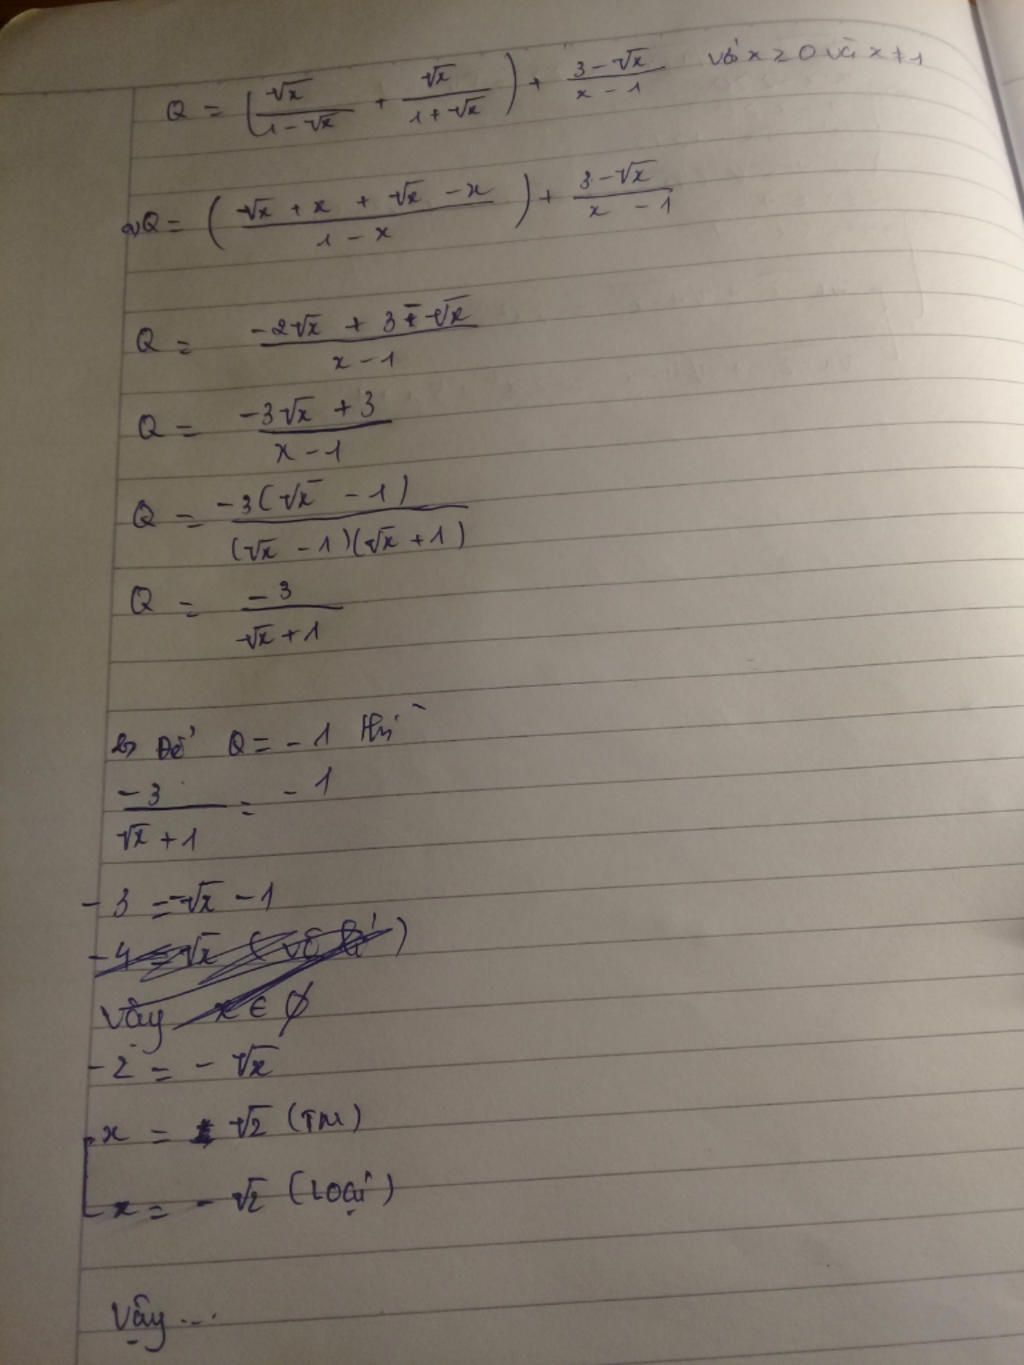 Q = (√x/(1-√x) + √x/(1+√x)) + (3-√x)/(x-1) với x ≥ 0 và x ≠ 1
a) Q = ((√x + x + √x - x)/(1-x)) + (3-√x)/(x-1)
Q = (-2√x + 3 - √x)/(x-1)
Q = (-3√x + 3)/(x-1)
Q = -3(√x - 1)/((√x - 1)(√x + 1))
Q = -3/(√x+1)
b) Để Q = -1 thì
-3/(√x+1) = -1
-3 = -√x - 1
-4 = √x (vô lí)
Vậy x ∈ ∅
-2 = -√x
x = √2 (TM)
x = -√2 (Loại)
Vậy ....